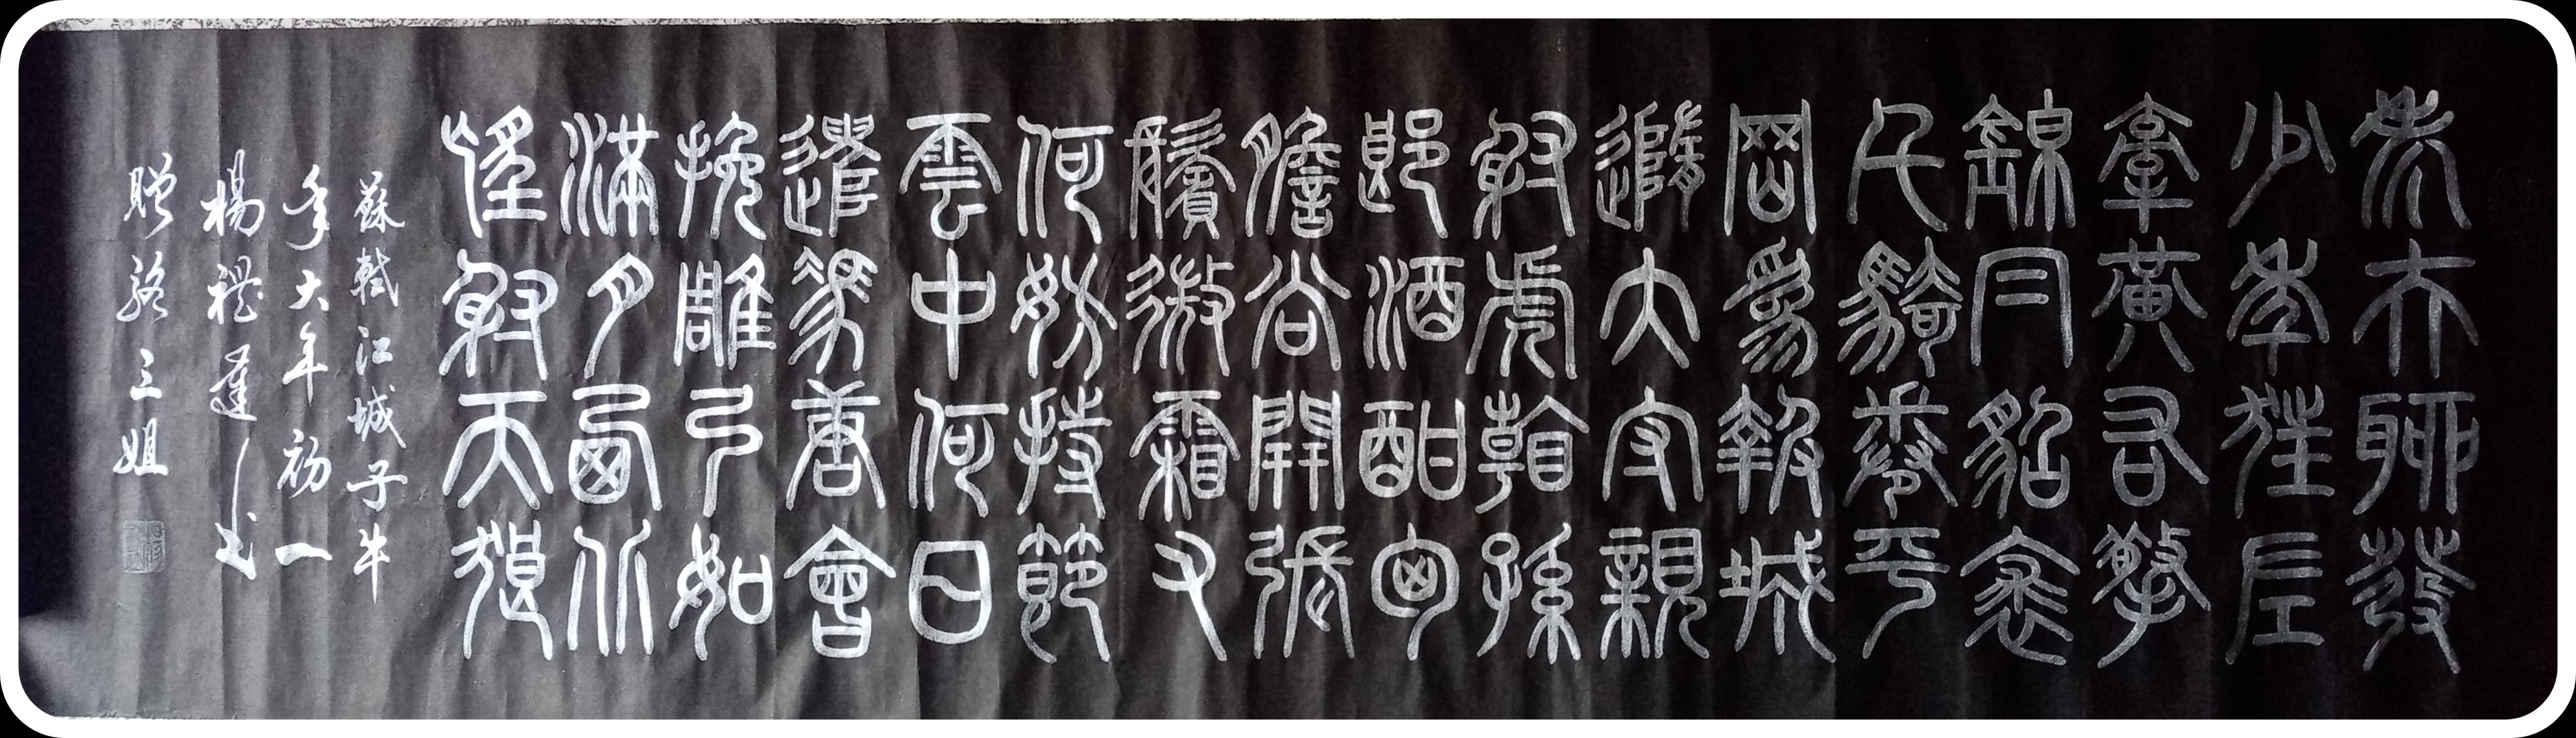 老夫聊發
少年狂左
牽黃右擎
錦冃貂裘
千騎卷平
岡為報城
隨大守親
射虎看孫
郎酒酣胸
膽尚開張
鬢微霜又
何妨持節
雲中何日
遣馮唐會
挽雕弓如
滿月西北
望射天狼
蘇軾江城子牛
年大年初一
楊禮蓮書
贈駱三姐